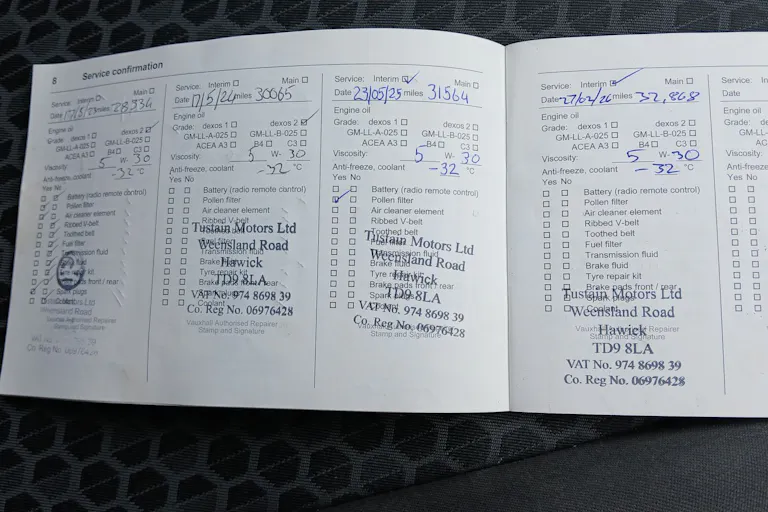 8 Service confirmation
Service: Interim Main
Date miles 28334
Engine oil
Grade: dexos 1 dexos 2
GM-LL-A-025 GM-LL-B-025
ACEA A3 B4 C3
Viscosity: 5 W- 30
Anti-freeze, coolant -32 °C
Yes No
Battery (radio remote control)
Pollen filter
Air cleaner element
Ribbed V-belt
Toothed belt
Fuel filter
Transmission fluid
Spark plugs
Vauxhall Authorised Repairer
Stamp and Signature
Co. Reg No. 06976428
Service: Interim Main
Date 17/5/24 miles 30065
Engine oil
Grade: dexos 1 dexos 2
GM-LL-A-025 GM-LL-B-025
ACEA A3 B4 C3
Viscosity: 5 W- 30
Anti-freeze, coolant -32 °C
Yes No
Battery (radio remote control)
Pollen filter
Air cleaner element
Ribbed V-belt
Tustain Motors Ltd
Weensland Road
Transmission fluid
Hawick
Tyre repair kit
TD9 8LA
VAT No. 974 8698 39
Coolant
Co. Reg No. 06976428
Vauxhall Authorised Repairer
Stamp and Signature
Service: Interim Main
Date 23/05/25 miles 31564
Engine oil
Grade: dexos 1 dexos 2
GM-LL-A-025 GM-LL-B-025
ACEA A3 B4 C3
Viscosity: 5 W- 30
Anti-freeze, coolant -32 °C
Yes No
Battery (radio remote control)
Pollen filter
Air cleaner element
Ribbed V-belt
Toothed belt
Tustain Motors Ltd
Weensland Road
Brake fluid
Hawick
Tyre repair kit
TD9 8LA
VAT No. 974 8698 39
Co. Reg No. 06976428
Stamp and Signature
Service: Interim Main
Date miles 32,868
Engine oil
Grade: dexos 1 dexos 2
GM-LL-A-025 GM-LL-B-025
ACEA A3 B4 C3
Viscosity: 5 W- 30
Anti-freeze, coolant -32 °C
Yes No
Battery (radio remote control)
Pollen filter
Air cleaner element
Ribbed V-belt
Toothed belt
Fuel filter
Transmission fluid
Brake fluid
Tyre repair kit
Brake pads front / rear
Spark plugs
Tustain Motors Ltd
Weensland Road
Hawick
Stamp and Signature
TD9 8LA
VAT No. 974 8698 39
Co. Reg No. 06976428
Service:
Date
Engine oil
Grade:
Viscosity:
Yes No